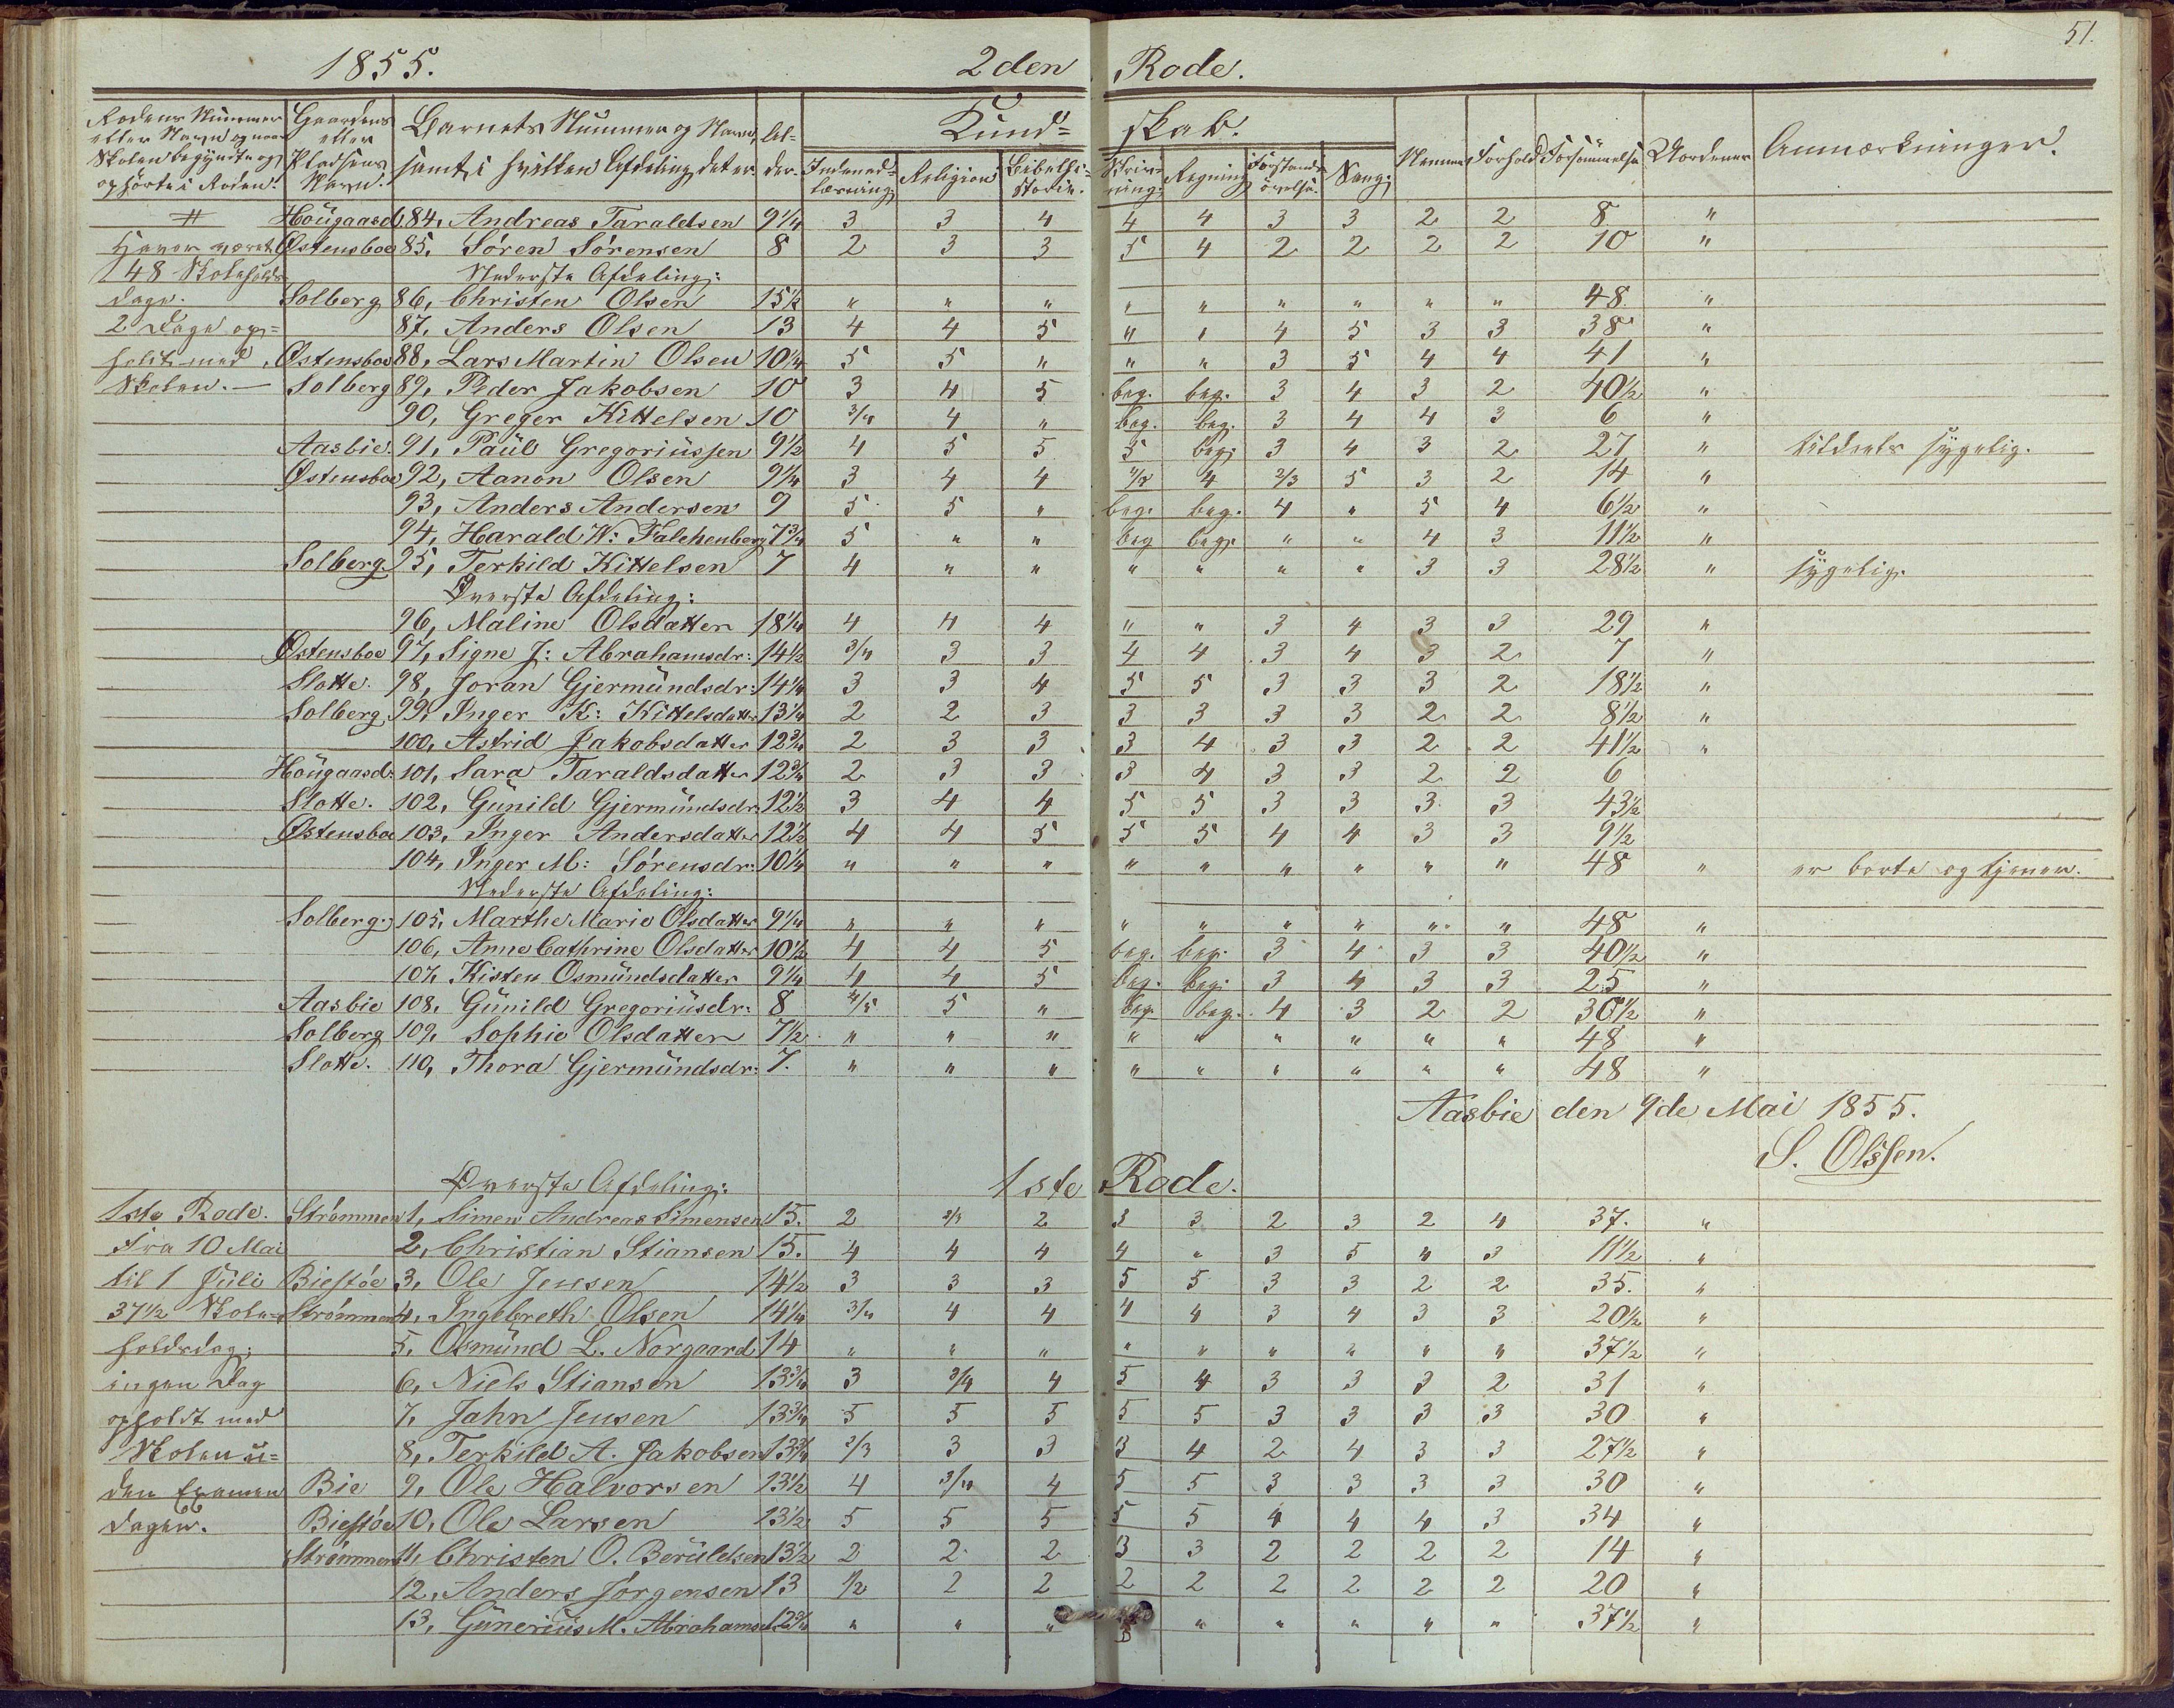 51.
1855. 2den Rode.
Rodens Nummer eller Navn og naar Skolen begyndte og ophörte i Roden. Gaardens eller Pladsens Navn. Barnets Nummer og Navn, samt i hvilken Afdeling det er. Al-der. Kund= skab. Indenad-læsning Religion Bibelhi-storie. Skriv-ning. Regning Forstands övelse. Sang. Nemme Forhold Forsömmelse Uordener Anmærkninger.
" Hougaasd. 84, Andreas Taraldsen 9 1/4 3 3 4 4 4 3 3 2 2 8 "
Haver været Östensboe 85, Sören Sörensen 8 2 3 3 5 4 2 2 2 2 10 "
48 Skoleholds Nederste Afdeling:
dage. Solberg 86, Christen Olsen 15 1/2 " " " " " " " " " 48 "
2 Dage op= 87, Anders Olsen 13 4 4 5 " " 4 5 3 3 38 "
holdt med Östensboe 88, Lars Martin Olsen 10 1/4 5 5 " " " 3 5 4 4 41 "
Skolen. — Solberg 89, Peder Jakobsen 10 3 4 5 beg. beg. 3 4 3 2 40 1/2 "
90, Greger Kittelsen 10 3/4 4 " beg. beg. 3 4 4 3 6 "
Aasbie. 91, Paul Gregoriussen 9 1/2 4 5 5 5 beg. 3 4 3 2 27 " tildeels sygelig.
Östensboe 92, Aanon Olsen 9 1/4 3 4 4 4/5 4 2/3 5 3 2 14 "
93, Anders Andersen 9 5 5 " beg. beg. 4 " 5 4 6 1/2 "
94, Harald W: Falchenberg 7 3/4 5 " " beg beg. " " 4 3 11 1/2 "
Solberg. 95, Terkild Kittelsen 7 4 " " " " " " 3 3 28 1/2 " sygelig.
Överste Afdeling:
96, Maline Olsdatter 18 1/4 4 4 4 " " 3 4 3 3 29 "
Östensboe 97, Signe J: Abrahamsdr: 14 1/2 3/4 3 3 4 4 3 4 3 2 7 "
Slotte. 98, Joran Gjermundsdr: 14 1/4 3 3 4 5 5 3 3 3 2 18 1/2 "
Solberg 99, Inger K: Kittelsdatter 13 1/4 2 2 3 3 3 3 3 2 2 8 1/2 "
100, Astrid Jakobsdatter 12 3/4 2 3 3 3 4 3 3 2 2 41 1/2 "
Hougaasd: 101, Sara Taraldsdatter 12 3/4 2 3 3 3 4 3 3 2 2 6
Slotte. 102, Gunild Gjermundsdr. 12 1/2 3 4 4 5 5 3 3 3 3 43 1/2
Östensboe 103, Inger Andersdatter 12 1/2 4 4 5 5 5 4 4 3 3 9 1/2
104, Inger M: Sörensdr: 10 1/4 " " " " " " " " " 48 " er borte og tjener.
Nederste Afdeling:
Solberg. 105, Marthe Marie Olsdatter 9 1/4 " " " " " " " " " 48 "
106, Anne Cathrine Olsdatter 10 1/2 4 4 5 beg. beg. 3 4 3 3 40 1/2 "
107, Kisten Osmundsdatter 9 1/4 4 4 5 beg. beg. 3 4 3 3 25 "
Aasbie 108, Gunild Gregoriusdr: 8 4/5 5 " beg. beg. 4 3 2 2 30 1/2 "
Solberg 109, Sophie Olsdatter 7 1/2 " " " " " " " " " 48 "
Slotte. 110, Thora Gjermundsdr: 7. " " " " " " " " " 48 "
Aasbie den 9de Mai 1855.
S. Olssen.
Överste Afdeling: 1ste Rode.
1ste Rode. Strömmen 1, Simen Andreas Simensen 15. 2 2/3 2 3 3 2 3 2 4 37. "
Fra 10 Mai 2, Christian Stiansen 15. 4 4 4 4 " 3 5 4 3 11 1/2 "
til 1 Juli Biestöe 3, Ole Jensen 14 1/2 3 3 3 5 5 3 3 2 2 35. "
37 1/2 Skole- Strömmen 4, Ingebreth Olsen 14 1/4 3/4 4 4 4 4 3 4 3 3 20 1/2 "
holdsdag; 5, Osmund L. Norgaard 14 " " " " " " " " " 37 1/2 "
ingen Dag 6, Niels Stiansen 13 3/4 3 3/4 4 5 4 3 3 3 2 31 "
opholdt med 7, Jahn Jensen 13 3/4 5 5 5 5 5 3 3 3 3 30 "
Skolen u= 8, Terkild A. Jakobsen 13 3/4 2/3 3 3 3 4 2 4 3 3 27 1/2 "
den Examen Bie 9, Ole Halvorsen 13 1/2 4 3/4 4 5 5 3 3 3 3 30 "
dagen. Biestöe 10, Ole Larsen 13 1/2 5 5 5 5 5 4 4 4 3 34 "
Strömmen 11, Christen O. Beruldsen 13 1/2 2 2 2 3 3 2 2 2 2 14 "
12, Anders Jörgensen 13 1/2 2 2 2 2 2 2 2 2 20 "
13, Gunerius M. Abrahamsen 12 3/4 " " " " " " " " 37 1/2 "